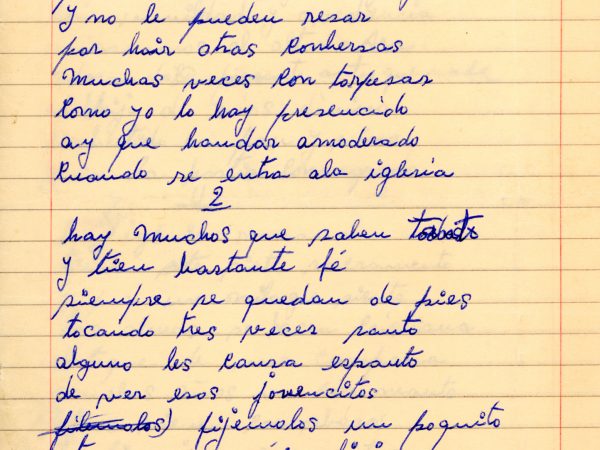 y no le pueden resar
por hair otras Conbersas
Muchas veces Con torpesas
Como yo lo hay presencido
ay que handar amoderado
Cuando se entra ala iglesia
2
hay Muchos que saben
y tien bastante fé
siempre se quedan de pies
tocando tres veces santo
alguno les Causa espanto
de ver esos jovencitos
fijemolos un poquito